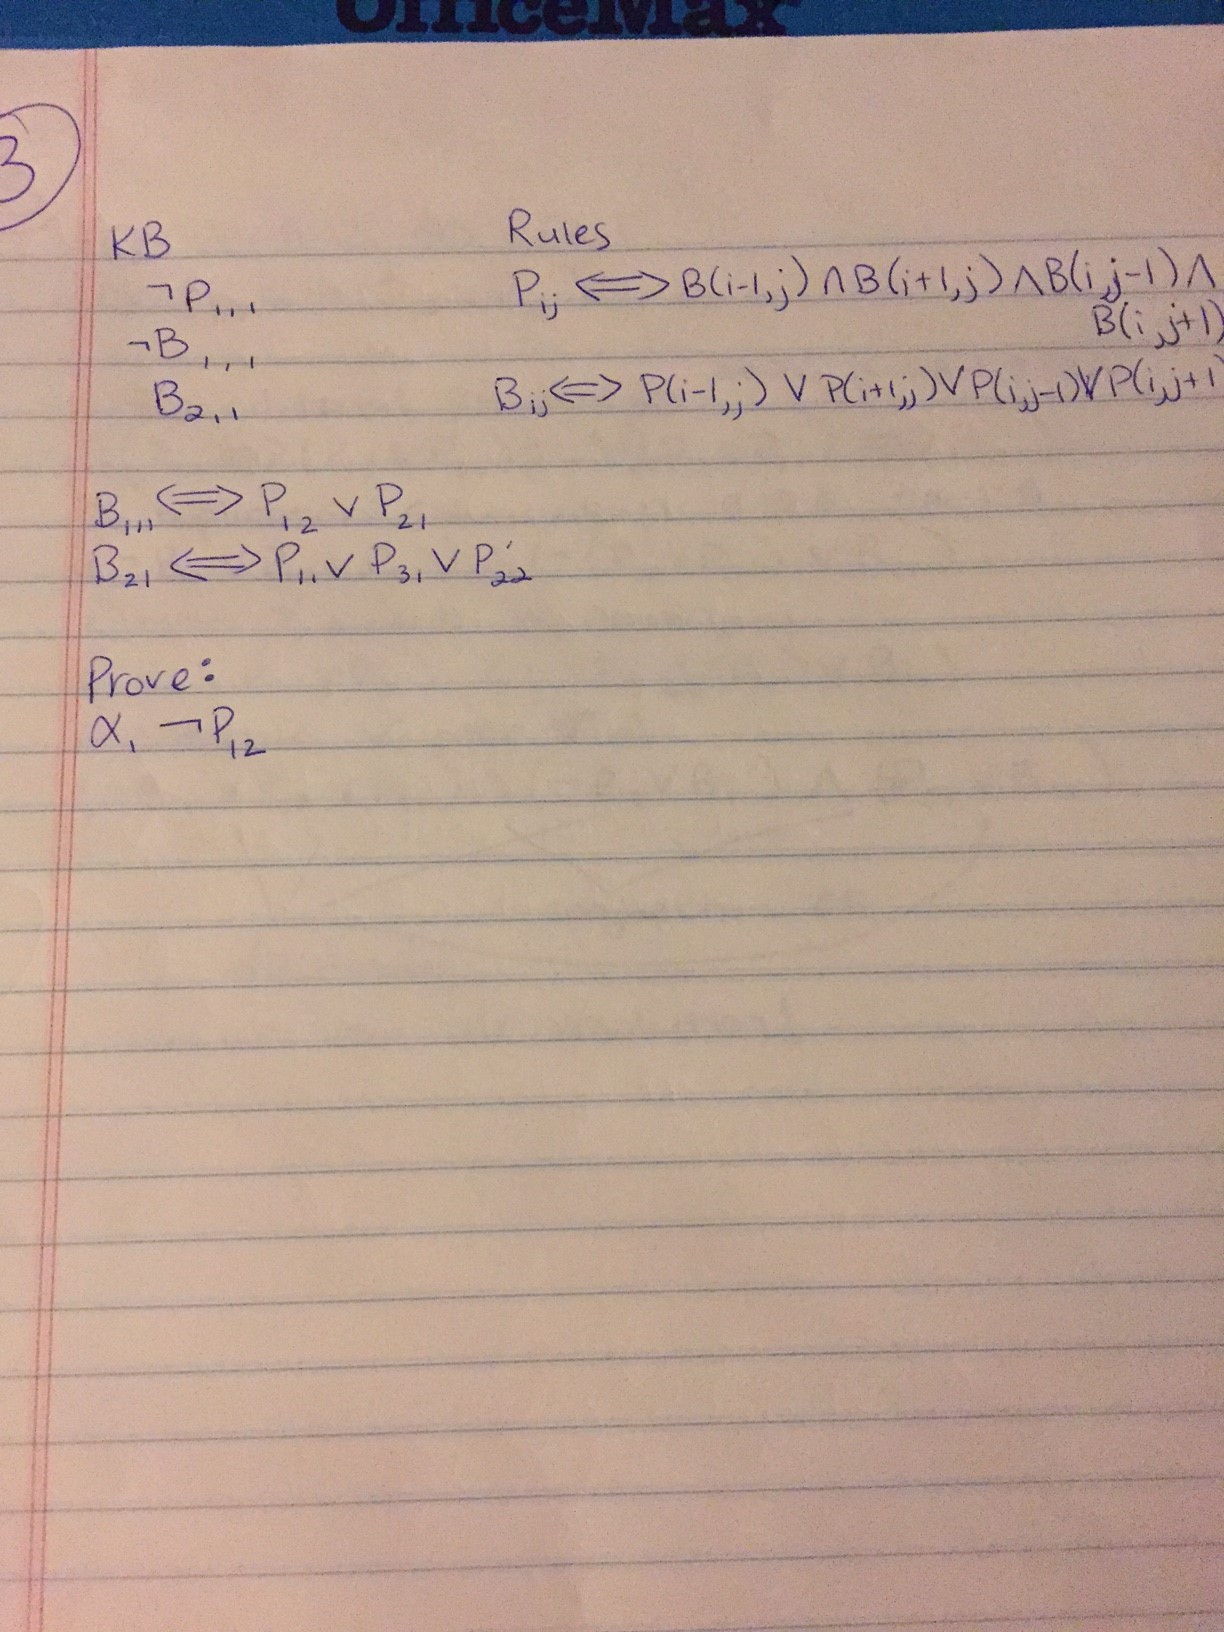 OfficeMax
3
KB
Rules
¬P1,1
Pij ⟺ B(i-1,j) ∧ B(i+1,j) ∧ B(i,j-1) ∧
B(i,j+1)
¬B1,1
B2,1
Bij ⟺ P(i-1,j) ∨ P(i+1,j) ∨ P(i,j-1) ∨ P(i,j+1
B1,1 ⟺ P12 ∨ P21
B21 ⟺ P11 ∨ P31 ∨ P22
Prove:
α1 ¬P12